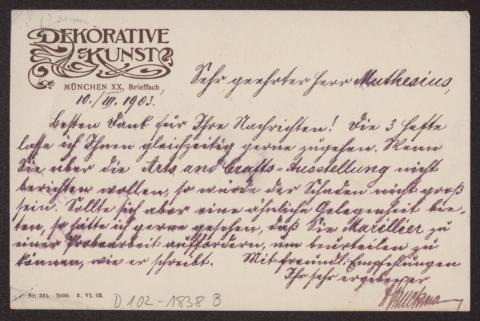 DEKORATIVE
KUNST
MÜNCHEN XX, Brieffach
10./III. 1903.
Sehr geehrter Herr Muthesius,
besten Dank für Ihre Nachrichten! Die 3 Hefte
lasse ich Ihnen gleichzeitig gerne zugehen. Wenn
Sie über die Arts and Crafts-Ausstellung nicht
berichten wollen, so würde der Schaden nicht groß
sein. Sollte sich aber eine ähnliche Gelegenheit bie-
ten, so hätte ich gerne gesehen, daß Sie Marillier zu
einer Probearbeit auffordern, um beurteilen zu
können, wie er schreibt. Mit freundl. Empfehlungen
Ihr sehr ergebener
Nr. 331. 2. VI. 02.
D 102-1838 B